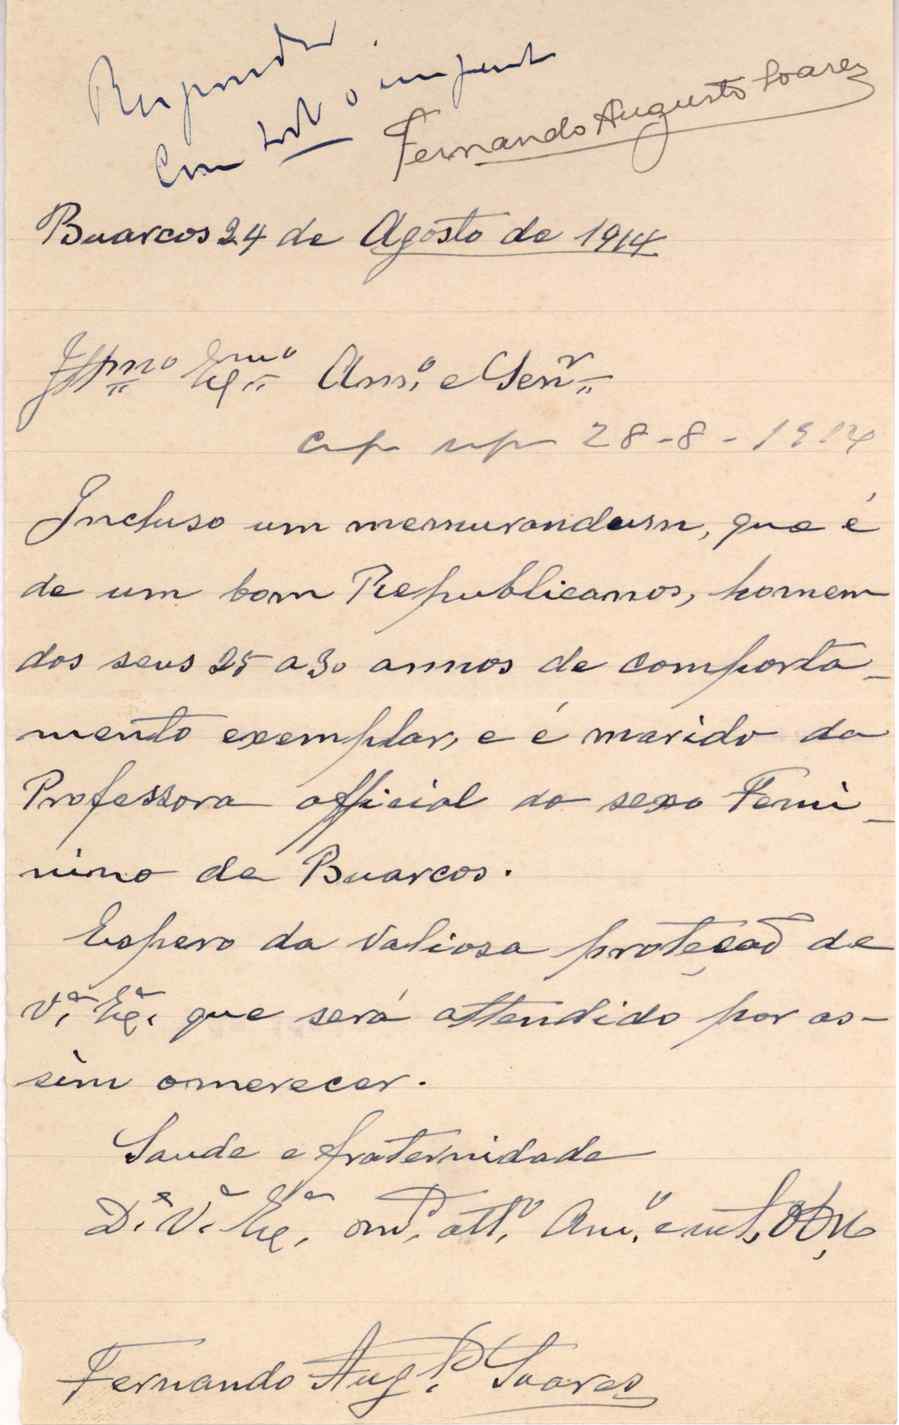 Responder
com todo o interesse
Fernando Augusto Soares
Buarcos 24 de Agosto de 1914
Illmo Exmo Amo e Senr
28-8-1914
Incluso um memurandum, que é
de um bom Republicanos, homem
dos seus 25 a 30 annos de comporta-
mento exemplar, e é marido da
Professora official do sexo Femi-
nino de Buarcos.
Espero da valiosa proteção de
V.ª Ex.ª que será attendido por as-
sim o merecer.
Saude e fraternidade
De V.ª Ex.ª att.º Am.º e
Fernando Aug.to Soares